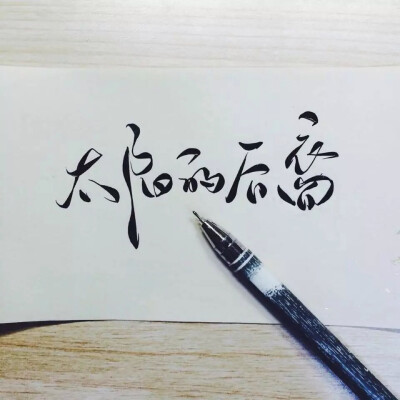 太阳的后裔